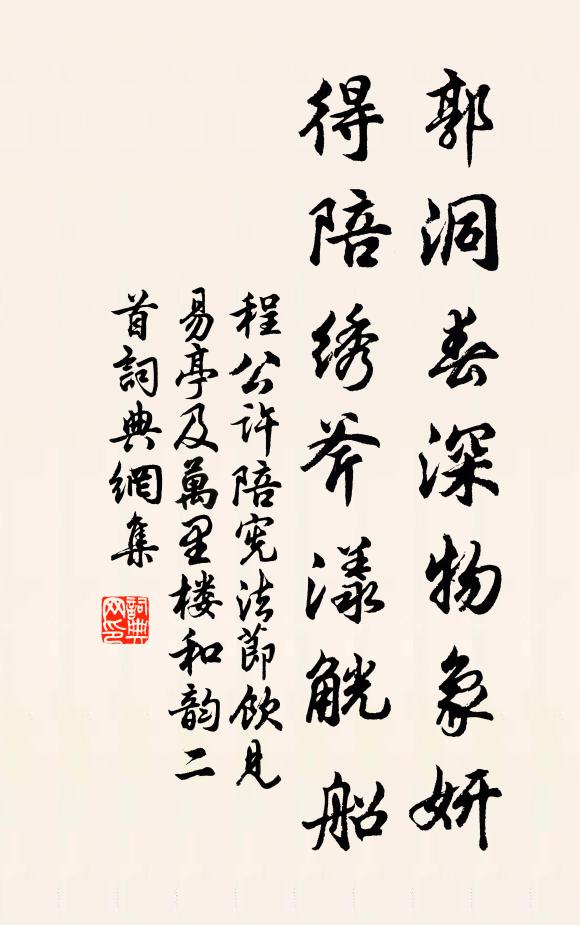 郭洞春深物象妍
得陪绣斧漾觥船
程公许陪宪法節飲見
易亭及萬里楼和韵二
首詞典網集
詞典网印